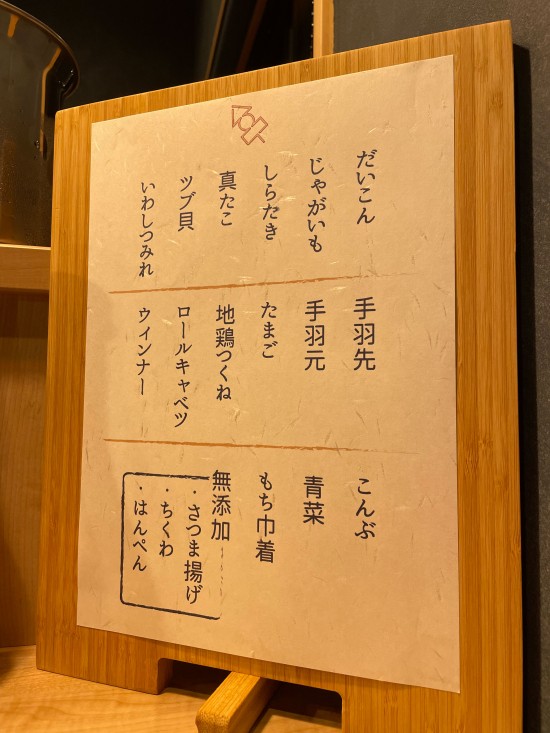 だいこん
じゃがいも
しらたき
真たこ
ツブ貝
いわしつみれ
手羽先
手羽元
たまご
地鶏つくね
ロールキャベツ
ウインナー
こんぶ
青菜
もち巾着
無添加
・さつま揚げ
・ちくわ
・はんぺん